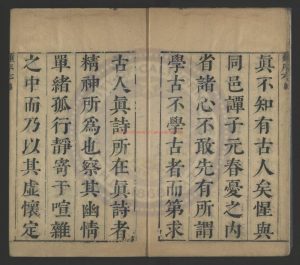 真不知有古人矣惺與
同邑譚子元春憂之內
省諸心不敢先有所謂
學古不學古者而第求
古人真詩所在真詩者
精神所為也察其幽情
單緒孤行靜寄于喧雜
之中而乃以其虛懷定